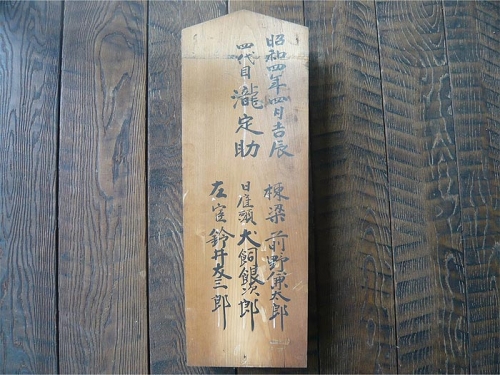 昭和四年四月吉辰
四代目 瀧定助
棟梁 前野偭太郎
日雇頭 犬飼銀次郎
左官 鈴井友三郎